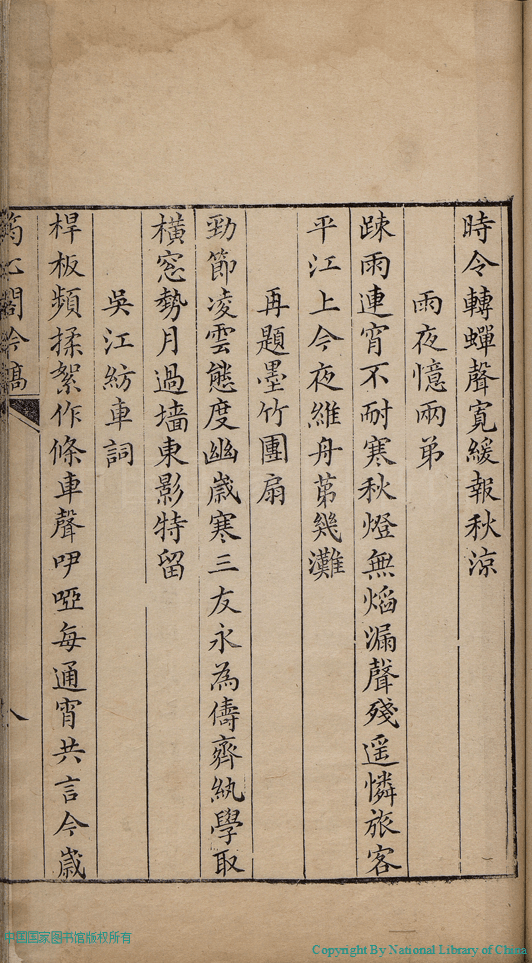 時令轉蟬聲寬緩報秋涼
雨夜憶兩弟
踈雨連宵不耐寒秋燈無焰漏聲殘遥憐旅客
平江上今夜維舟第幾灘
再題墨竹團扇
勁節凌雲態度幽歲寒三友永為儔齊紈學取
橫窓勢月過墻東影特留
吳江紡車詞
桿板頻揉絮作條車聲咿啞每通宵共言今歲
閣吟稿
八
中国国家图书馆版权所有
Copyright By National Library of China